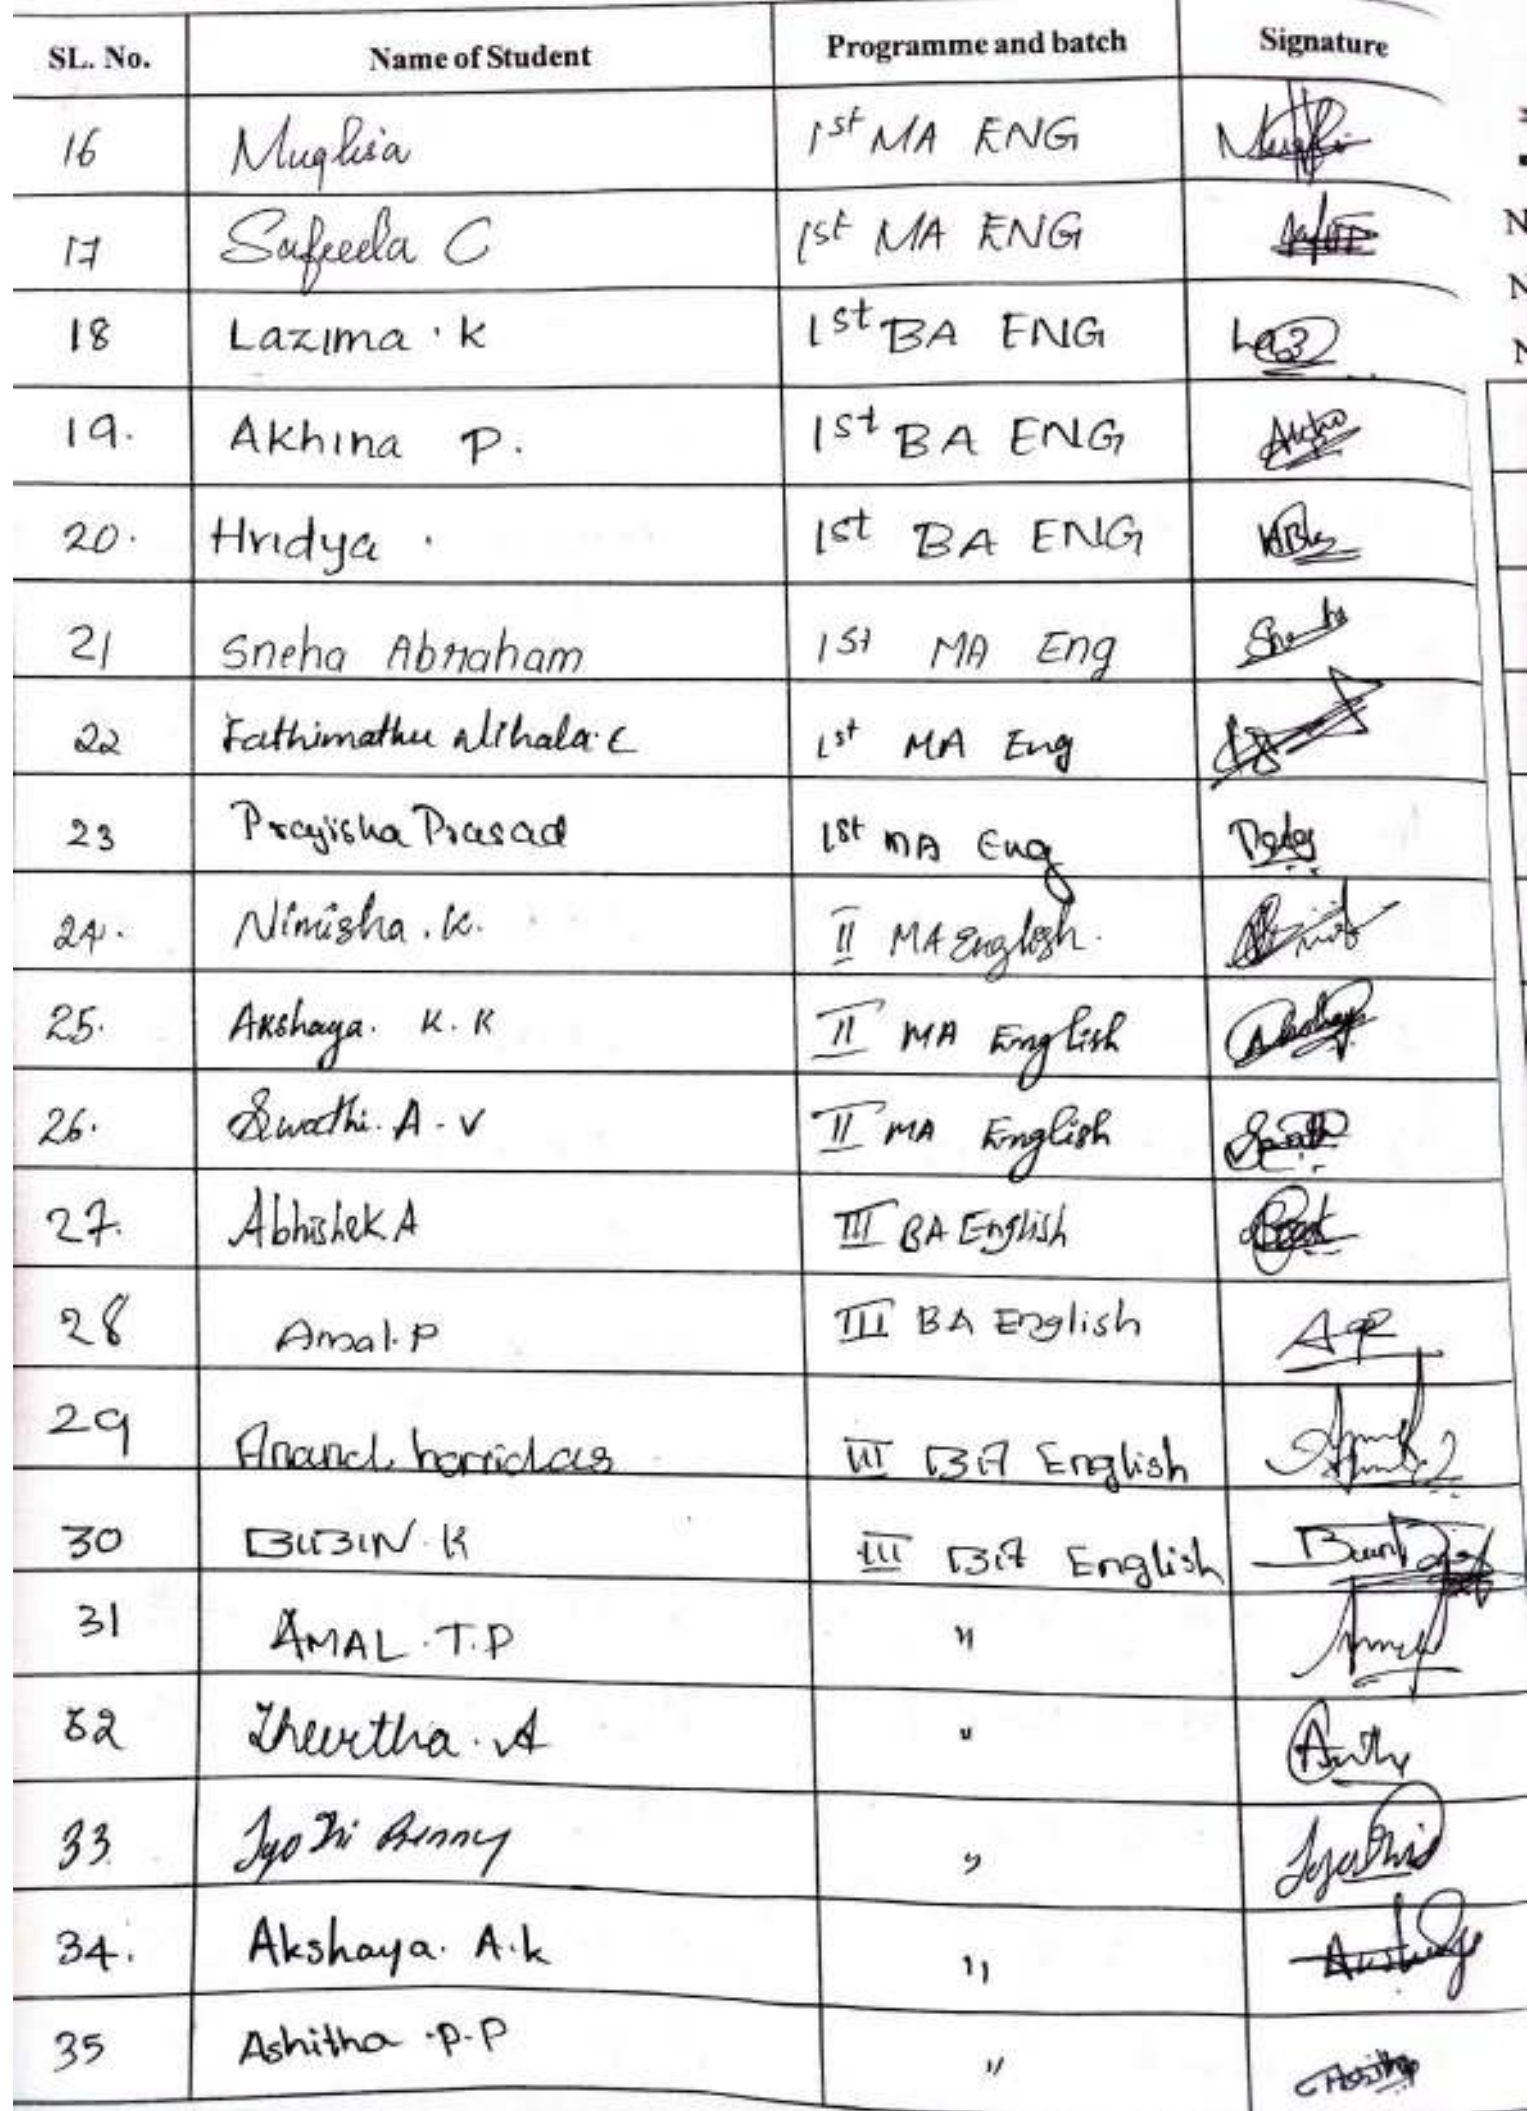 SL. No. Name of Student Programme and batch Signature
16 Muglisa 1st MA ENG
17 Safeela C 1st MA ENG
18 Lazima . K 1st BA ENG
19. Akhina P. 1st BA ENG
20. Hridya . 1st BA ENG
21 Sneha Abraham 1st MA Eng
22 Fathimathu Nihala. C 1st MA Eng
23 Prayisha Prasad 1st MA Eng
24. Nimisha . K. II MA English.
25. Akshaya. K. K II MA English
26. Swathi. A. V II MA English
27. Abhishek A III BA English
28 Amal. P III BA English
29 Anand haridas III BA English
30 BIBIN. K III BA English
31 AMAL . T. P "
32 A "
33. Jyothi Benny "
34. Akshaya. A. k "
35 Ashitha . P. P "